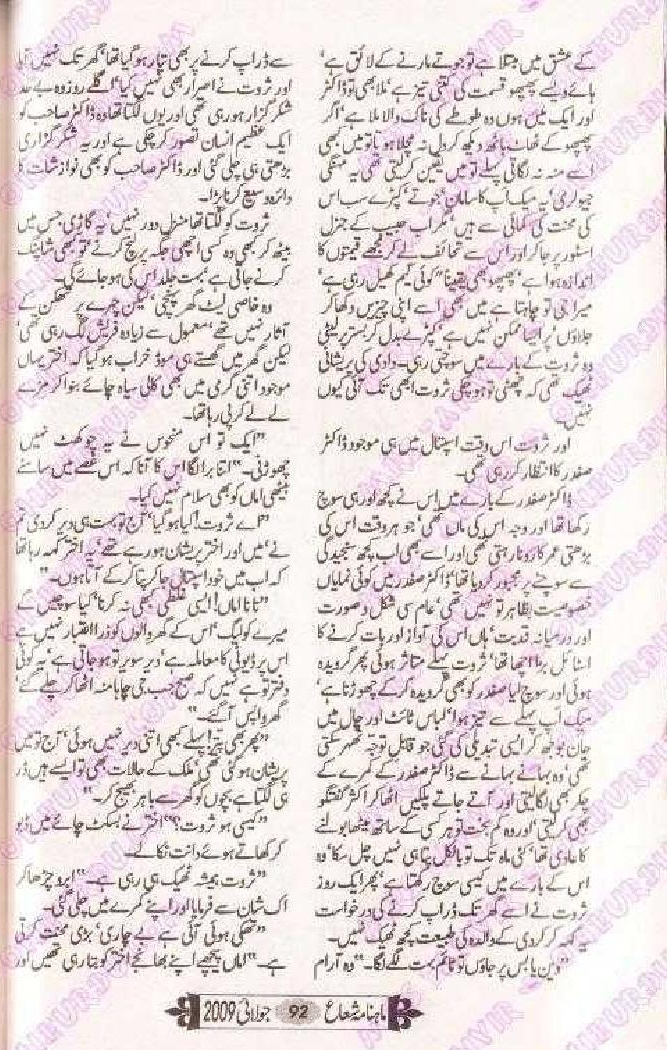 کے عشق میں مبتلا ہے تو جوتے مارنے کے لائق ہے‘
ہائے ویسے پھپھو قسمت کی کتنی تیز ہے‘ ملا بھی تو ڈاکٹر
اور ایک میں ہوں وہ طوطے کی ناک والا ملا ہے‘ اگر
پھپھو کے ٹھاٹ باٹھ دیکھ کر دل نہ مچلا ہوتا تو میں بھی
اسے منہ نہ لگاتی پہلے تو میں یقین کر لیتی تھی یہ مہنگی
جیولری‘ یہ میک اپ کا سامان‘ جوتے‘ کپڑے سب اس
کی محنت کی کمائی سے ہیں‘ مگر اب حبیب کے جنرل
اسٹور پر جا کر اور اس سے تحائف لے کر مجھے قیمتوں کا
اندازہ ہوا ہے‘ پھپھو بھی یقیناً کوئی گیم کھیل رہی ہے‘
میرا جی تو چاہتا ہے میں بھی اسے اپنی چیزیں دکھا کر
جلاؤں پر ایسا ممکن نہیں ہے‘ کپڑے بدل کر بستر پر لیٹی
وہ ثروت کے بارے میں سوچتی رہی۔ دادی کی پریشانی
ٹھیک تھی کہ چھٹی تو ہو چکی ثروت ابھی تک آئی کیوں
نہیں۔
اور ثروت اس وقت اسپتال میں ہی موجود ڈاکٹر
صفدر کا انتظار کر رہی تھی۔
ڈاکٹر صفدر کے بارے میں اس نے کچھ اور ہی سوچ
رکھا تھا اور وجہ اس کی ماں تھی‘ جو ہر وقت اس کی
بڑھتی عمر کا رونا روتی تھی اور اسے بھی اب کچھ سنجیدگی
سے سوچنے پر مجبور کر دیا تھا‘ ڈاکٹر صفدر میں کوئی نمایاں
خصوصیت بظاہر تو نہیں تھی‘ عام سی شکل و صورت
اور درمیانہ قد بت‘ ہاں اس کی آواز اور بات کرنے کا
اسٹائل بڑا اچھا تھا‘ ثروت پہلے متاثر ہوئی پھر گرویدہ
ہوئی اور سوچ لیا صفدر کو بھی گرویدہ کر کے چھوڑنا ہے‘
میک اپ پہلے سے تیز ہوا‘ لباس ٹائٹ اور چال میں
جان بوجھ کر ایسی تبدیلی کی گئی جو قابل توجہ ٹھہر سکتی
تھی‘ وہ بہانے بہانے سے ڈاکٹر صفدر کے کمرے کے
چکر بھی لگا لیتی اور آتے جاتے پلکیں اٹھا کر اکثر گفتگو
بھی کر لیتی‘ اور وہ کم بخت تو ہر کسی کے ساتھ میٹھا بولنے
کا عادی تھا‘ کئی ماہ تک تو بالکل پتا ہی نہیں چل سکا‘ وہ
اس کے بارے میں کیسی سوچ رکھتا ہے‘ پھر ایک روز
ثروت نے اسے گھر تک ڈراپ کرنے کی درخواست
یہ کہہ کر کر دی کہ والدہ کی طبیعت کچھ ٹھیک نہیں۔
”وین یا بس پر جاؤں تو ٹائم بہت لگے گا۔“ وہ آرام
سے ڈراپ کرنے پر بھی تیار ہو گیا تھا‘ گھر تک نہیں آیا
اور ثروت نے اصرار بھی نہیں کیا‘ اگلے روز وہ بے حد
شکر گزار ہو رہی تھی اور یوں لگتا تھا وہ ڈاکٹر صاحب کو
ایک عظیم انسان تصور کر چکی ہے اور یہ شکر گزاری
بڑھتی ہی چلی گئی اور ڈاکٹر صاحب کو بھی نوازشات کا
دائرہ وسیع کرنا پڑا۔
ثروت کو لگتا تھا منزل دور نہیں‘ یہ گاڑی جس میں
بیٹھ کر کبھی وہ کسی اچھی جگہ پر لنچ کرنے‘ تو کبھی شاپنگ
کرنے جاتی ہے بہت جلد اس کی ہو جائے گی۔
وہ خاصی لیٹ گھر پہنچی‘ لیکن چہرے پر تھکن کے
آثار نہیں تھے‘ معمول سے زیادہ فریش لگ رہی تھی‘
لیکن گھر میں گھستے ہی موڈ خراب ہو گیا کہ اختر یہاں
موجود اتنی گرمی میں بھی کالی سیاہ چائے بنوا کر مزے
لے لے کر پی رہا تھا۔
”ایک تو اس منحوس نے یہ چوکھٹ نہیں
چھوڑنی۔“ اتنا برا لگا اس کا آنا کہ اس غصے میں سامنے
بیٹھی اماں کو بھی سلام نہیں کیا۔
”اے ثروت! کیا ہو گیا‘ آج تو بہت ہی دیر کر دی تم
نے‘ میں اور اختر پریشان ہو رہے تھے‘ یہ اختر کہہ رہا تھا
کہ اب میں خود اسپتال جا کر پتا کر کے آتا ہوں۔“
”نا نا اماں! ایسی غلطی کبھی نہ کرنا‘ کیا سوچیں گے
میرے کولیگ‘ اس کے گھر والوں کو ذرا اعتبار نہیں ہے
اس پر ڈیوٹی کا معاملہ ہے‘ دیر سویر تو ہو جاتی ہے‘ یہ کوئی
دفتر تو ہے نہیں کہ صبح جب جی چاہا منہ اٹھا کر چلے گئے‘
گھر واپس آ گئے۔“
”پھر بھی پتر! پہلے کبھی اتنی دیر نہیں ہوئی‘ آج تو میں
پریشان ہو گئی تھی‘ ملک کے حالات بھی تو ایسے ہیں ڈر
ہی لگتا ہے بچوں کو گھر سے باہر بھیج کر۔“
”کیسی ہو ثروت؟“ اختر نے بسکٹ چائے میں ڈبو
کر کھاتے ہوئے دانت نکالے۔
”ثروت ہمیشہ ٹھیک ہی رہی ہے۔“ ابرو چڑھا کر
اک شان سے فرمایا اور اپنے کمرے میں چلی گئی۔
”تھکی ہوئی آئی ہے بے چاری‘ بڑی محنت کرتی
ہے۔“ اماں پیچھے اپنے بھانجے اختر کو بتا رہی تھیں اور
ماہنامہ شعاع 92 جولائی 2009